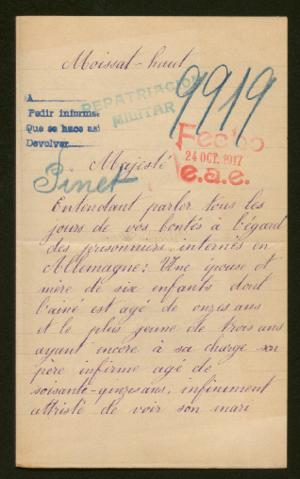 Moissat-haut
9919
A
Pedir informa
Que se hace asi
Devolver
REPATRIACION
MILITAR
Fecho
24 OCT. 1917
e.a.e.
Majesté
Pinet
Entendant parler tous les
jours de vos bontés à l'égard
des prisonniers internés en
Allemagne; Une épouse et
mère de six enfants dont
l'ainé est agé de onze ans
et le plus jeune de trois ans
ayant encore à sa charge son
père infirme agé de
soixante-quinze ans, infiniment
attristé de voir son mari